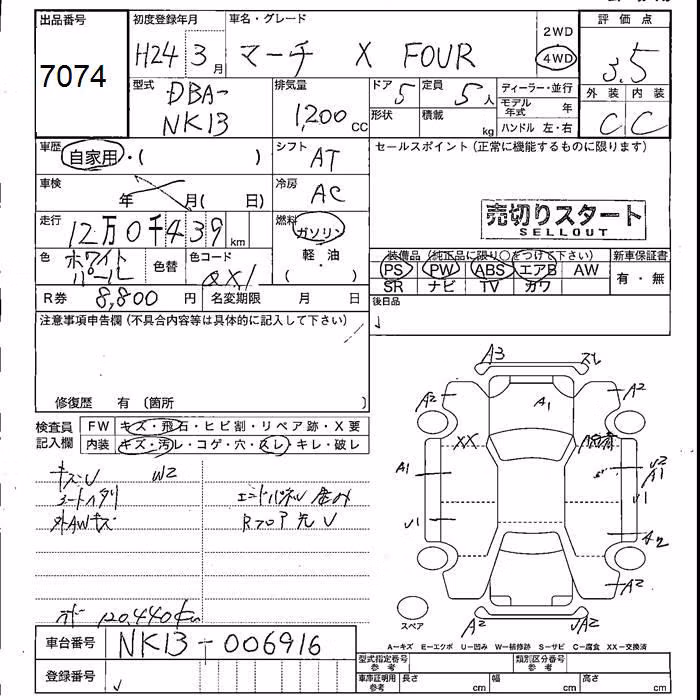 出品番号
7074
初度登録年月
H24 3月
車名・グレード
マーチ X FOUR
2WD
4WD
評価点
3.5
外装 内装
C C
型式
DBA-
NK13
排気量
1,200 CC
ドア 5
定員 5 人
形状
積載 kg
ディーラー・並行
モデル年式 年
ハンドル 左・右
車歴
自家用・( )
シフト AT
セールスポイント(正常に機能するものに限ります)
車検 年 月( 日)
冷房 AC
売切りスタート
SELLOUT
走行 12万0千439 km
燃料
ガソリン
軽・油
( )
色 ホワイトパール
色替
色コード QX1
装備品 (純正品に限り○をつけて下さい)
PS PW ABS エアB AW
SR ナビ TV カワ
新車保証書
有・無
R券 8,800 円
名変期限 月 日
後日品
注意事項申告欄(不具合内容等は具体的に記入して下さい)
修復歴 有〔箇所 〕
検査員記入欄
FW キズ・飛石・ヒビ割・リペア跡・X要
内装 キズ・汚レ・コゲ・穴・スレ・キレ・破レ
キズU W2
シートヘタリ
外AWキズ
エンドパネル
Rフロア先U
120,440km
A3 スレ
A2 A1 A2
XX
A1
A1
A2
A2
A2
スペア
A=キズ E=エクボ U=凹み W=補修跡 S=サビ C=腐食 XX=交換済
車台番号 NK13-006916
登録番号
型式指定番号 参考
類別区分番号 参考
車庫証明用 参考
長さ cm 幅 cm 高さ cm